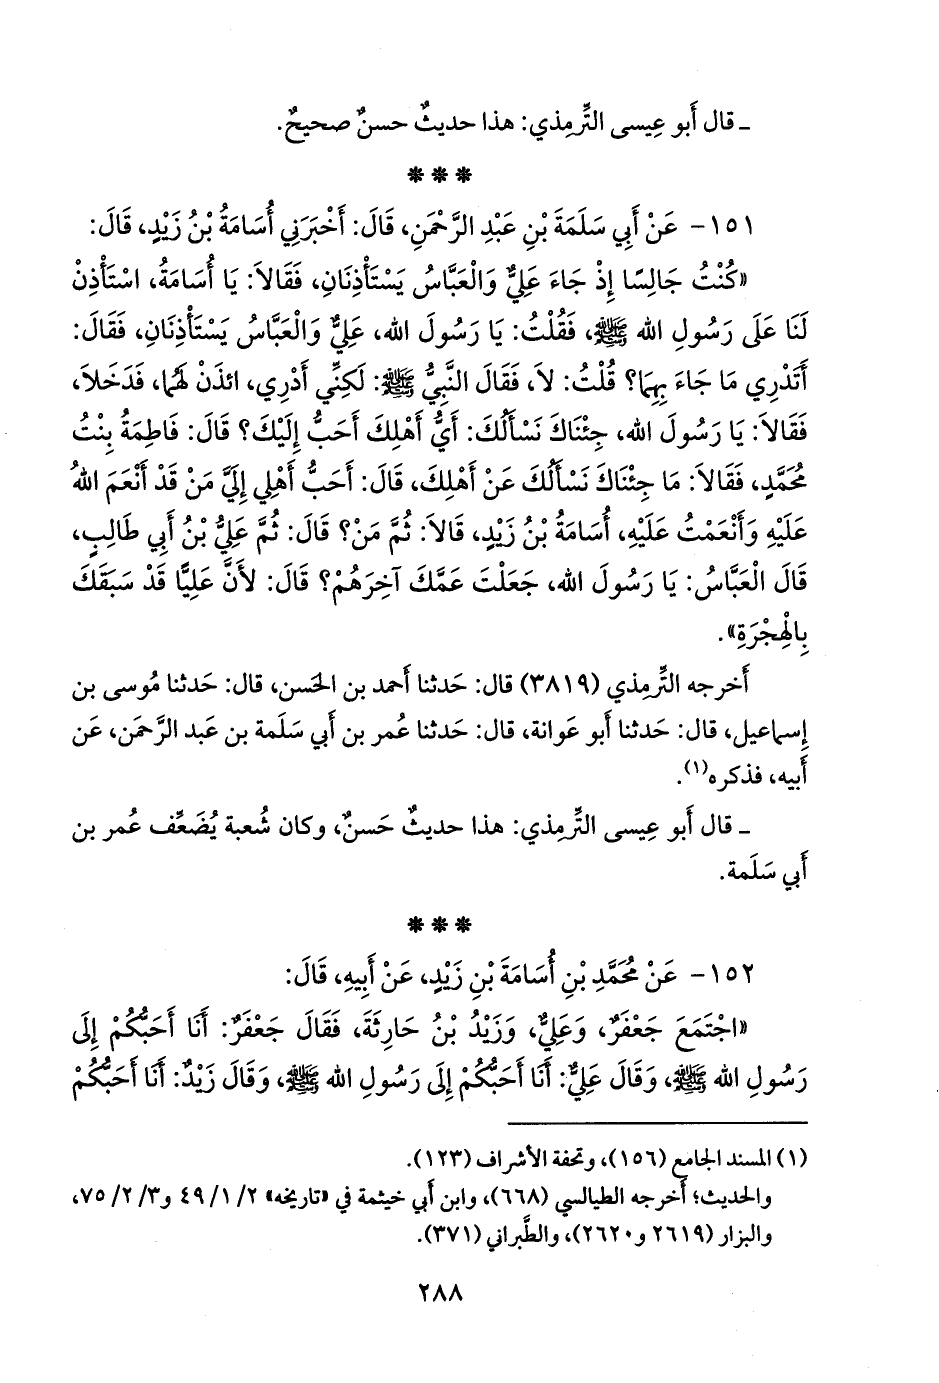 ـ قال أَبو عِيسى التِّرمِذي: هذا حديثٌ حسنٌ صحيحٌ.
* * *
١٥١- عَنْ أَبِي سَلَمَةَ بْنِ عَبْدِ الرَّحْمَنِ، قَالَ: أَخْبَرَنِي أُسَامَةُ بْنُ زَيْدٍ، قَالَ:
«كُنْتُ جَالِسًا إِذْ جَاءَ عَلِيٌّ وَالْعَبَّاسُ يَسْتَأْذِنَانِ، فَقَالاَ: يَا أُسَامَةُ، اسْتَأْذِنْ
لَنَا عَلَى رَسُولِ الله ﷺ، فَقُلْتُ: يَا رَسُولَ الله، عَلِيٌّ وَالْعَبَّاسُ يَسْتَأْذِنَانِ، فَقَالَ:
أَتَدْرِي مَا جَاءَ بِهِمَا؟ قُلْتُ: لاَ، فَقَالَ النَّبِيُّ ﷺ: لَكِنِّي أَدْرِي، ائْذَنْ لَهُمَا، فَدَخَلاَ،
فَقَالاَ: يَا رَسُولَ الله، جِئْنَاكَ نَسْأَلُكَ: أَيُّ أَهْلِكَ أَحَبُّ إِلَيْكَ؟ قَالَ: فَاطِمَةُ بِنْتُ
مُحَمَّدٍ، فَقَالاَ: مَا جِئْنَاكَ نَسْأَلُكَ عَنْ أَهْلِكَ، قَالَ: أَحَبُّ أَهْلِي إِلَيَّ مَنْ قَدْ أَنْعَمَ اللهُ
عَلَيْهِ وَأَنْعَمْتُ عَلَيْهِ، أُسَامَةُ بْنُ زَيْدٍ، قَالاَ: ثُمَّ مَنْ؟ قَالَ: ثُمَّ عَلِيُّ بْنُ أَبِي طَالِبٍ،
قَالَ الْعَبَّاسُ: يَا رَسُولَ الله، جَعَلْتَ عَمَّكَ آخِرَهُمْ؟ قَالَ: لأَنَّ عَلِيًّا قَدْ سَبَقَكَ
بِالْهِجْرَةِ».
أَخرجه التِّرمِذي (٣٨١٩) قال: حَدثنا أَحمد بن الحَسن، قال: حَدثنا مُوسى بن
إِسماعيل، قال: حَدثنا أَبو عَوانة، قال: حَدثنا عُمر بن أَبي سَلَمة بن عَبد الرَّحمَن، عَن
أَبيه، فذكره(١).
ـ قال أَبو عِيسى التِّرمِذي: هذا حديثٌ حَسنٌ، وكان شُعبة يُضَعِّف عُمر بن
أَبي سَلَمة.
* * *
١٥٢- عَنْ مُحَمَّدِ بْنِ أُسَامَةَ بْنِ زَيْدٍ، عَنْ أَبِيهِ، قَالَ:
«اجْتَمَعَ جَعْفَرٌ، وَعَلِيٌّ، وَزَيْدُ بْنُ حَارِثَةَ، فَقَالَ جَعْفَرٌ: أَنَا أَحَبُّكُمْ إِلَى
رَسُولِ الله ﷺ، وَقَالَ عَلِيٌّ: أَنَا أَحَبُّكُمْ إِلَى رَسُولِ الله ﷺ، وَقَالَ زَيْدٌ: أَنَا أَحَبُّكُمْ
(١) المسند الجامع (١٥٦)، وتحفة الأشراف (١٢٣).
والحديث؛ أَخرجه الطيالسي (٦٦٨)، وابن أَبي خيثمة في «تاريخه» ٢/ ١/ ٤٩ و٣/ ٢/ ٧٥،
والبزار (٢٦١٩ و٢٦٢٠)، والطَّبراني (٣٧١).
٢٨٨